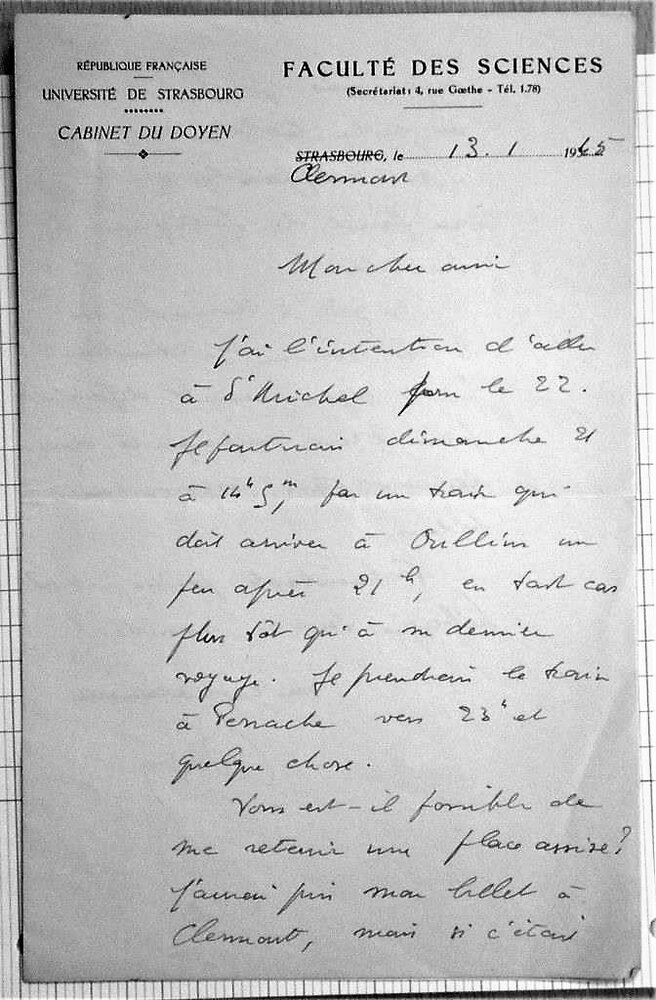 RÉPUBLIQUE FRANÇAISE
UNIVERSITÉ DE STRASBOURG
CABINET DU DOYEN
FACULTÉ DES SCIENCES
(Secrétariat: 4, rue Gœthe - Tél. 1.78)
STRASBOURG, le 13.1 1945
Clermont
Mon cher ami
J'ai l'intention d'aller
à St Michel pour le 22.
Je partirai dimanche 21
à 14h 5m, par un train qui
doit arriver à Oullins un
peu après 21h, en tout cas
plus tôt qu'à mon dernier
voyage. Je prendrai le train
à Perrache vers 23h et
quelque chose.
Vous est-il possible de
me retenir une place assise?
J'aurai pris mon billet à
Clermont, mais si c'était